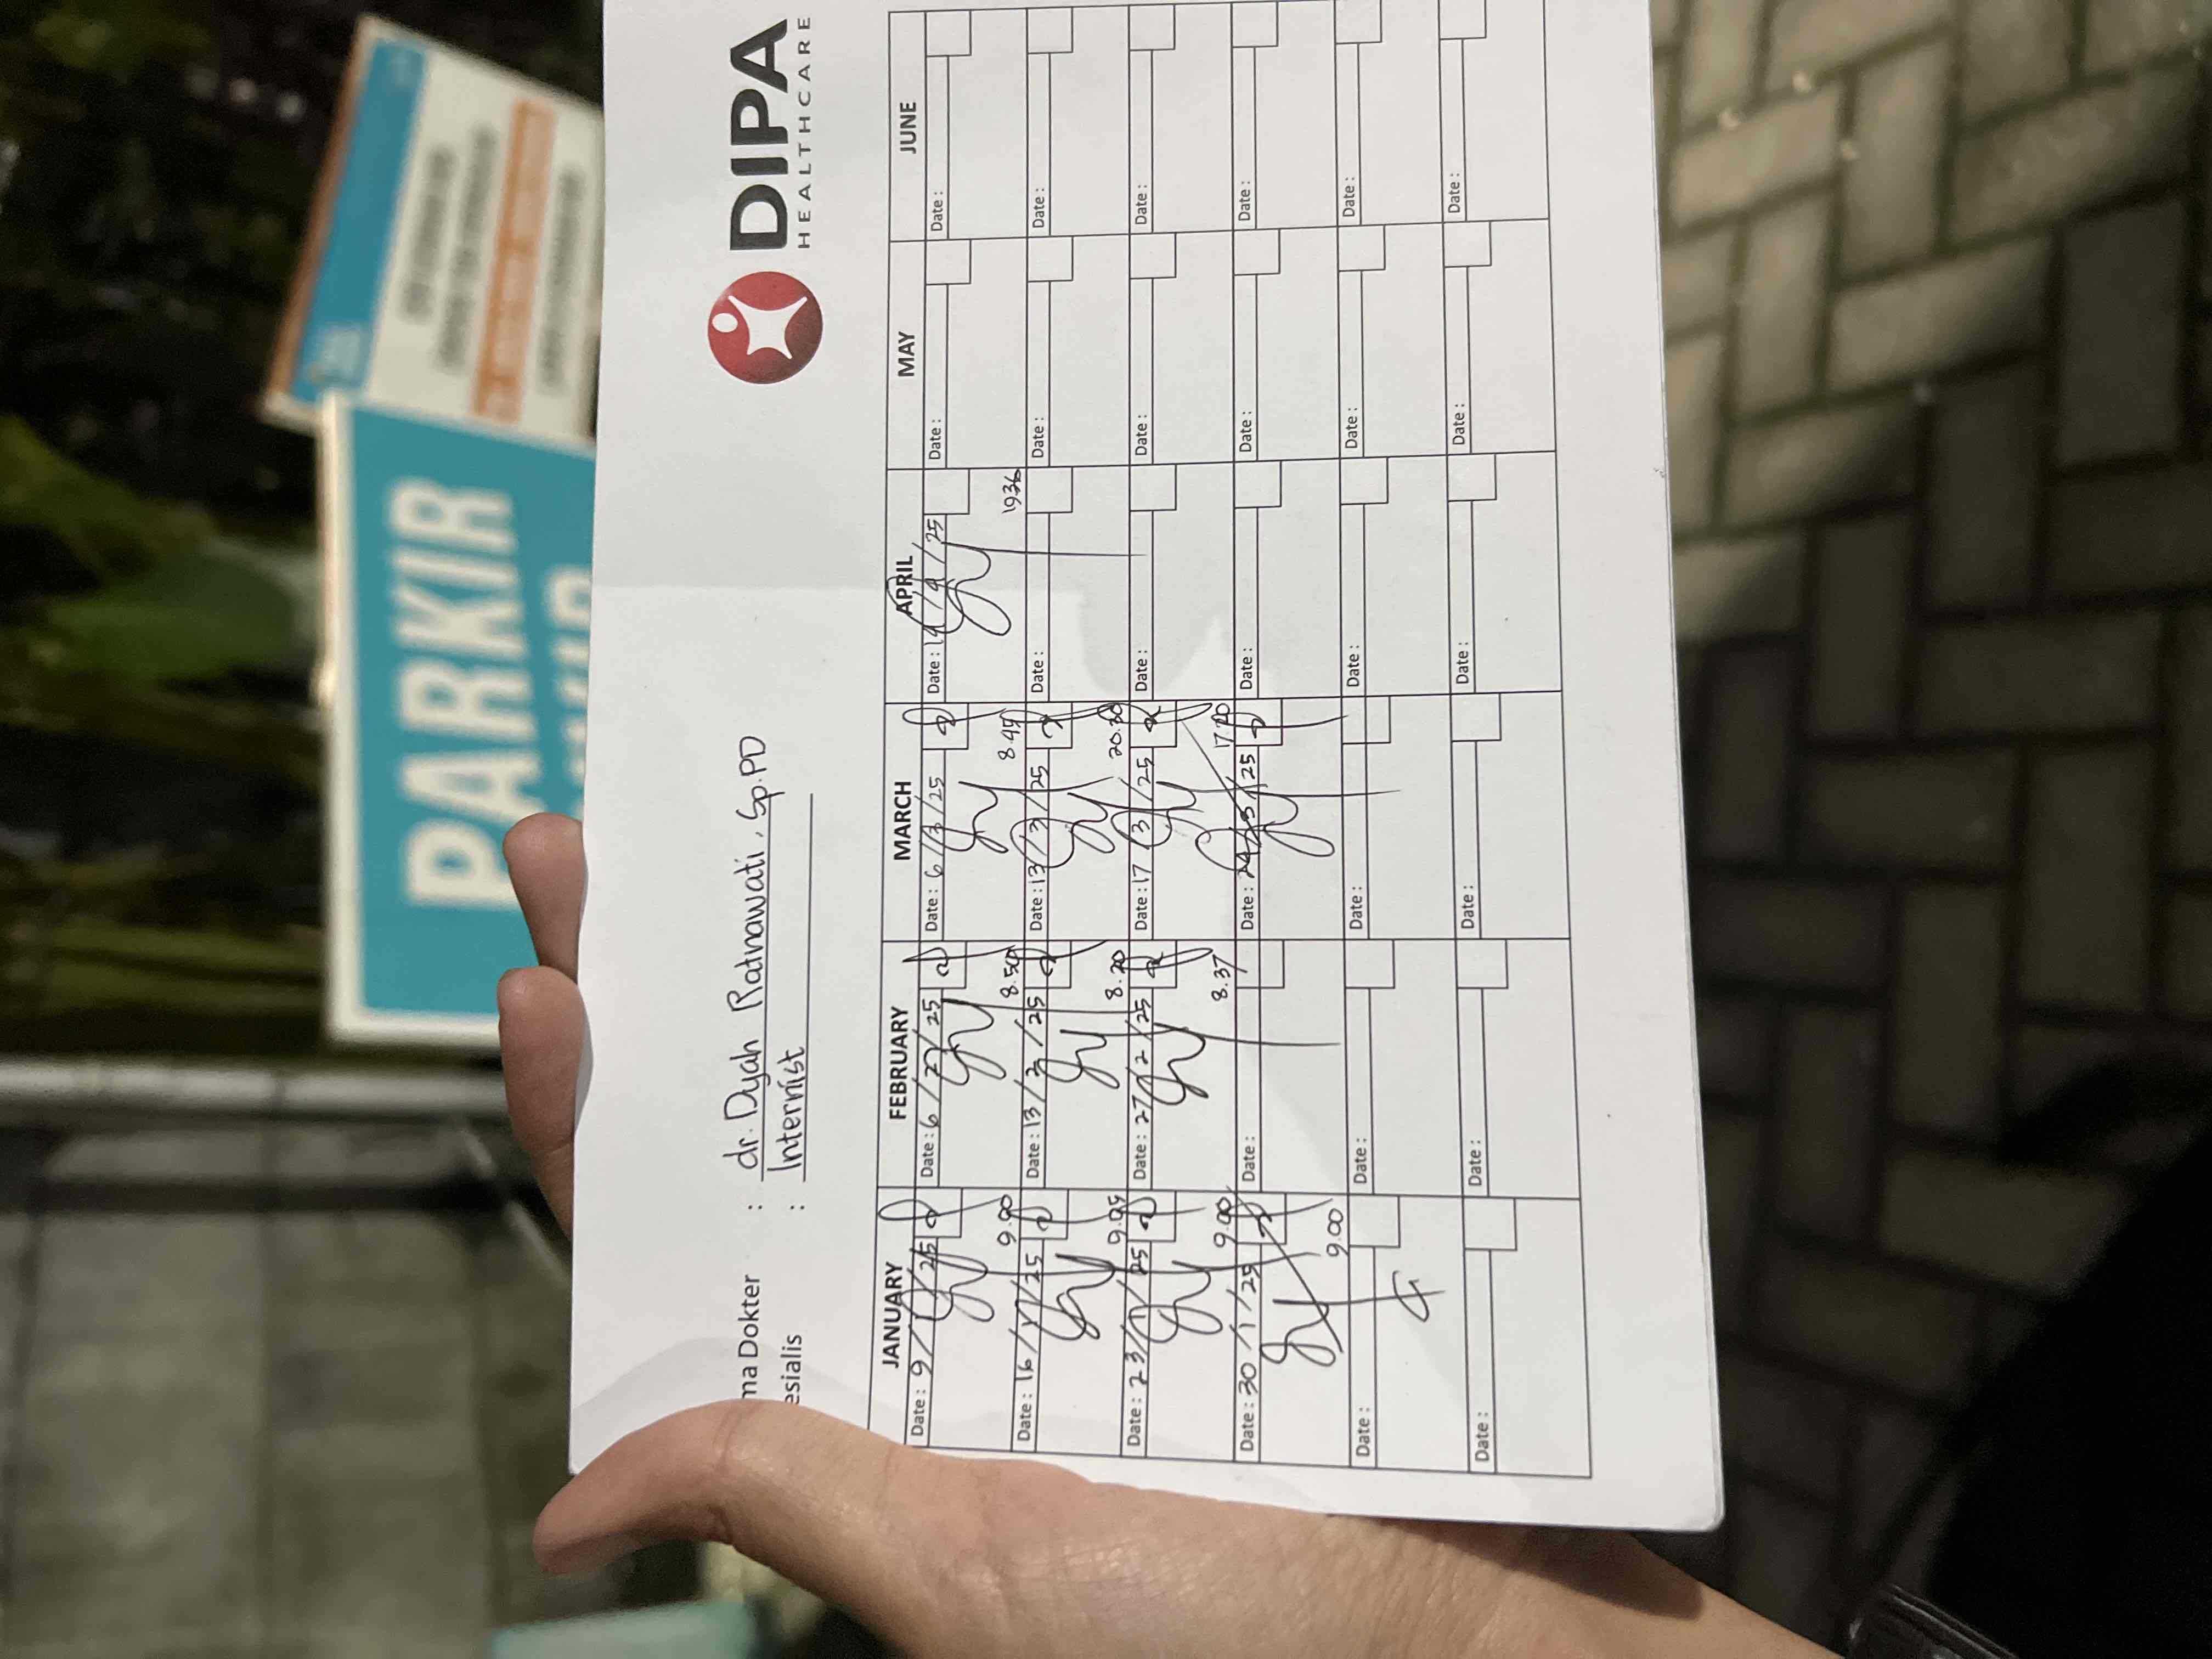 DIPA
HEALTHCARE
ma Dokter : dr. Dyah Ratnawati, Sp.PD
esialis : Internist
JANUARY FEBRUARY MARCH APRIL MAY JUNE
Date : 9/1/25 Date : 6/2/25 Date : 6/3/25 Date : 14/4/25 Date : Date :
9.00 8.50 8.45 1936
Date : 16/1/25 Date : 13/2/25 Date : 13/3/25 Date : Date : Date :
9.05 8.20 20.30
Date : 23/1/25 Date : 27/2/25 Date : 17/3/25 Date : Date : Date :
9.00 8.37 17.20
Date : 30/1/25 Date : Date : 24/3/25 Date : Date : Date :
9.00
Date : Date : Date : Date : Date : Date :
Date : Date : Date : Date : Date : Date :
PARKIR